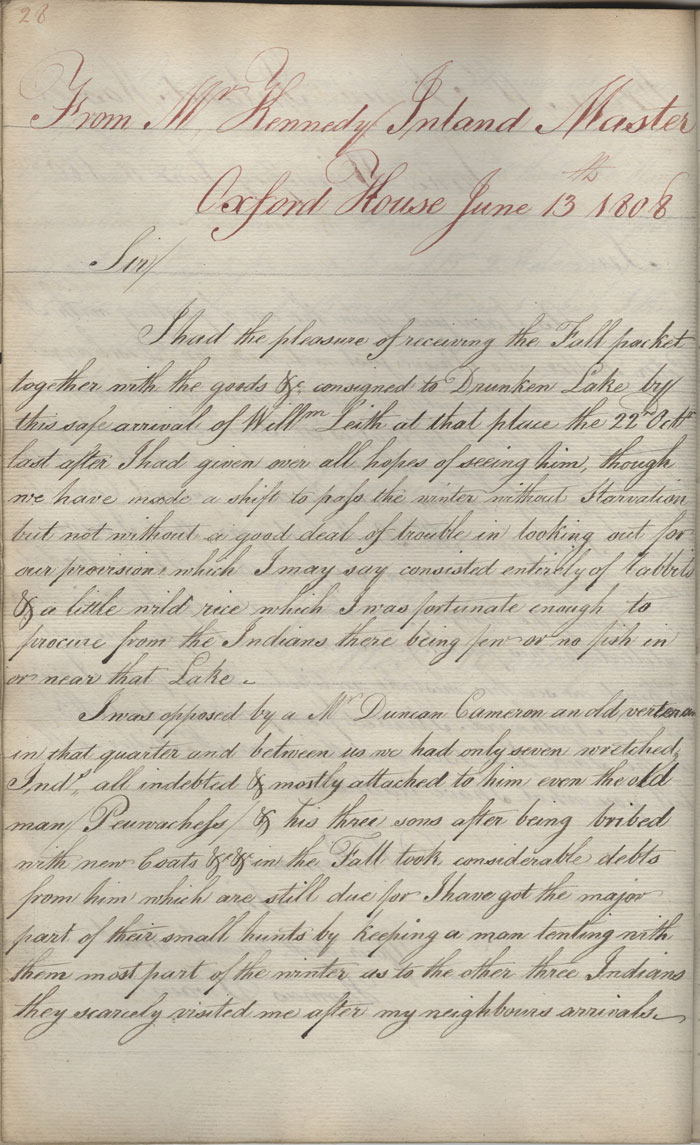 28
From Mr Kennedy Inland Master
Oxford House June 13th 1808
Sir/
I had the pleasure of receiving the Fall packet
together with the goods &c consigned to Drunken Lake by
this safe arrival of Willm Leith at that place the 22nd Octr
last after I had given over all hopes of seeing him, though
we have made a shift to pass the winter without Starvation
but not without a good deal of trouble in looking out for
our provision which I may say consisted entirely of rabbits
& a little wild rice which I was fortunate enough to
procure from the Indians there being few or no fish in
or near that Lake.
I was opposed by a Mr Duncan Cameron an old verteran
in that quarter and between us we had only seven wretched
Inds, all indebted & mostly attached to him even the old
man / Peuwachess / & his three sons after being bribed
with new Coats &c &c in the Fall took considerable debts
from him which are still due for I have got the major
part of their small hunts by keeping a man tenting with
them most part of the winter as to the other three Indians
they scarcely visited me after my neighbours arrivals.